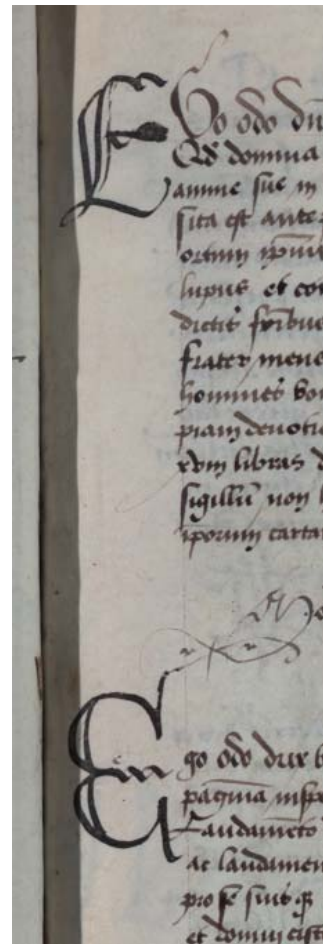 Ego odo dn̄
Qd domina
anime sue in
sita est ante
ortum ip̄m
lupus et con
dictis fr̄ibus
frater meus
homines bon
piam devotio
libras d
sigillū non h
ip̄orum carta
Ego odo dux b
pagina inspe
Laudamēto
ac laudamen
pro se suis q̨
et domui cist